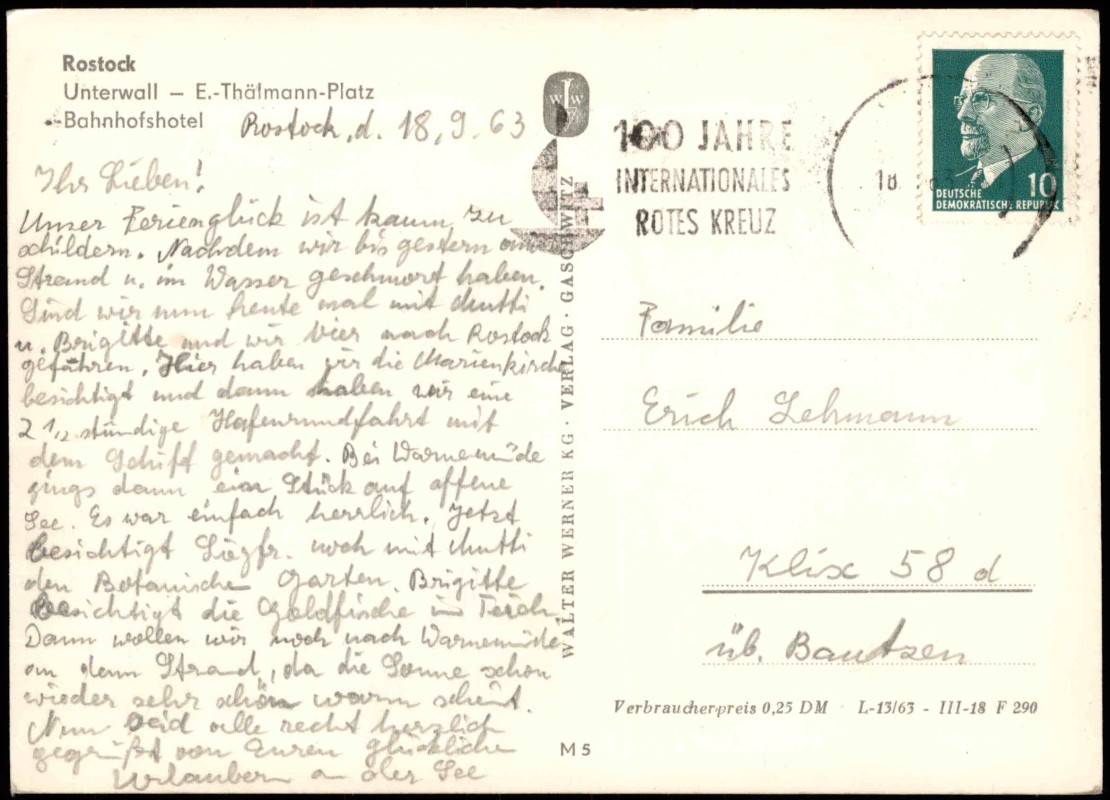 Rostock
Unterwall – E.-Thälmann-Platz
Bahnhofshotel
Rostock, d. 18.9.63
Ihr Lieben!
Unser Ferienglück ist kaum zu
schildern. Nachdem wir bis gestern am
Strand u. im Wasser geschmort haben,
Sind wir nun heute mal mit Mutti
u. Brigitte und wir Vier nach Rostock
gefahren. Hier haben wir die Marienkirche
besichtigt und dann haben wir eine
2 1/2 stündige Hafenrundfahrt mit
dem Schiff gemacht. Bei Warnemünde
gings dann ein Stück auf offene
See. Es war einfach herrlich. Jetzt
besichtigt Siegfr. noch mit Mutti
den Botanischen Garten. Brigitte
besichtigt die Goldfische im Teich.
Dann wollen wir noch nach Warnemünde
an dem Strand, da die Sonne schon
wieder sehr schön warm scheint.
Nun seid alle recht herzlich
gegrüßt von Euren glückliche
Urlaubern an der See
WALTER WERNER KG · VERLAG · GASCHWITZ
M 5
100 JAHRE
INTERNATIONALES
ROTES KREUZ
18
10
DEUTSCHE
DEMOKRATISCHE REPUBLIK
Familie
Erich Lehmann
Klix 58 d
üb. Bautzen
Verbraucherpreis 0,25 DM · L-13/63 - III-18 F 290